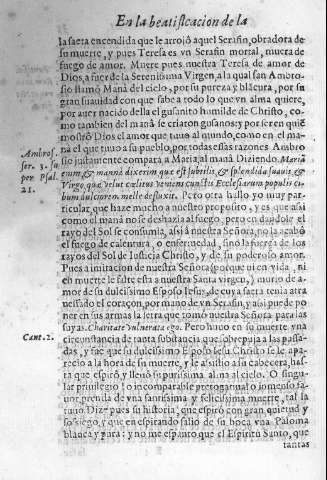 En la beatificacion de la
la saeta encendida que le arrojó aquel Serafin, obradora de
su muerte, y pues Teresa es vn Serafin mortal, muera de
fuego de amor. Muere pues nuestra Teresa de amor de
Dios, a fuer de la Serenissima Virgen, a la qual san Ambro-
sio llamò Manà del cielo, por su pureza y blãcura, por su
gran suauidad con que sabe a todo lo que vn alma quiere,
por auer nacido della el gusanito humilde de Christo, co-
mo tambien del manà se criaron gusanos, y por ser en quiẽ
mostrò Dios el amor que tuuo al mundo, como en el ma-
nà el que tuuo a su pueblo, por todas estas razones Ambro
sio justamente compara a Maria, al manà Diziendo. Mariã
enim & mannà dixerim quæ est subtilis, & splendida suauis &
Virgo, quæ velut cælitus veniens cunctis Ecclesiarum populis ci-
bum dulciorem melle defluxit. Pero otra hallo yo muy par-
ticular, que haze mucho a nuestro proposito, y es que assi
como el manà no se deshazia al fuego, pero en dandole el
rayo del Sol se consumia, assi a nuestra Señora, no la acabó
el fuego de calentura, o enfermedad, sino la fuerça de los
rayos del Sol de Iusticia Christo, y de su poderoso amor.
Pues a imitacion de nuestra Señora (porque ni en vida, ni
en muerte le faltresse a nuestra Santa virgen,) murio de a-
mor de su dulcissimo Esposo Iesus, de cuya saeta tenia atra
uessado el coraçon, por mano de vn Serafin, y assi puede po
ner en sus armas la letra que tomò nuestra Señora para las
suyas. Charitate vulnerata ego. Pero huuo en su muerte vna
circunstancia de tanta substancia que sobrepuja a las passa-
das, y fue que su dulcissimo Esposo Iesu Christo se le apa-
recio a la hora de su muerte, y le assistio a su cabecera, has-
ta que espirò y lleuò su purissima alma al cielo. O singu-
lar priuilegio! o incomparable prerogatiua! o imenso fa-
uor, prenda de vna santissima y felicissima muerte, tal la
tuuo. Dize pues su historia, que espirò con gran quietud y
sossiego, y que en espirando salio de su boca vna Paloma
blanca y pura: y no me espanto que el Espiritu Santo, que
tantas
Ambros.
ser. 3. su
per Psal.
21.
Cant. 2.